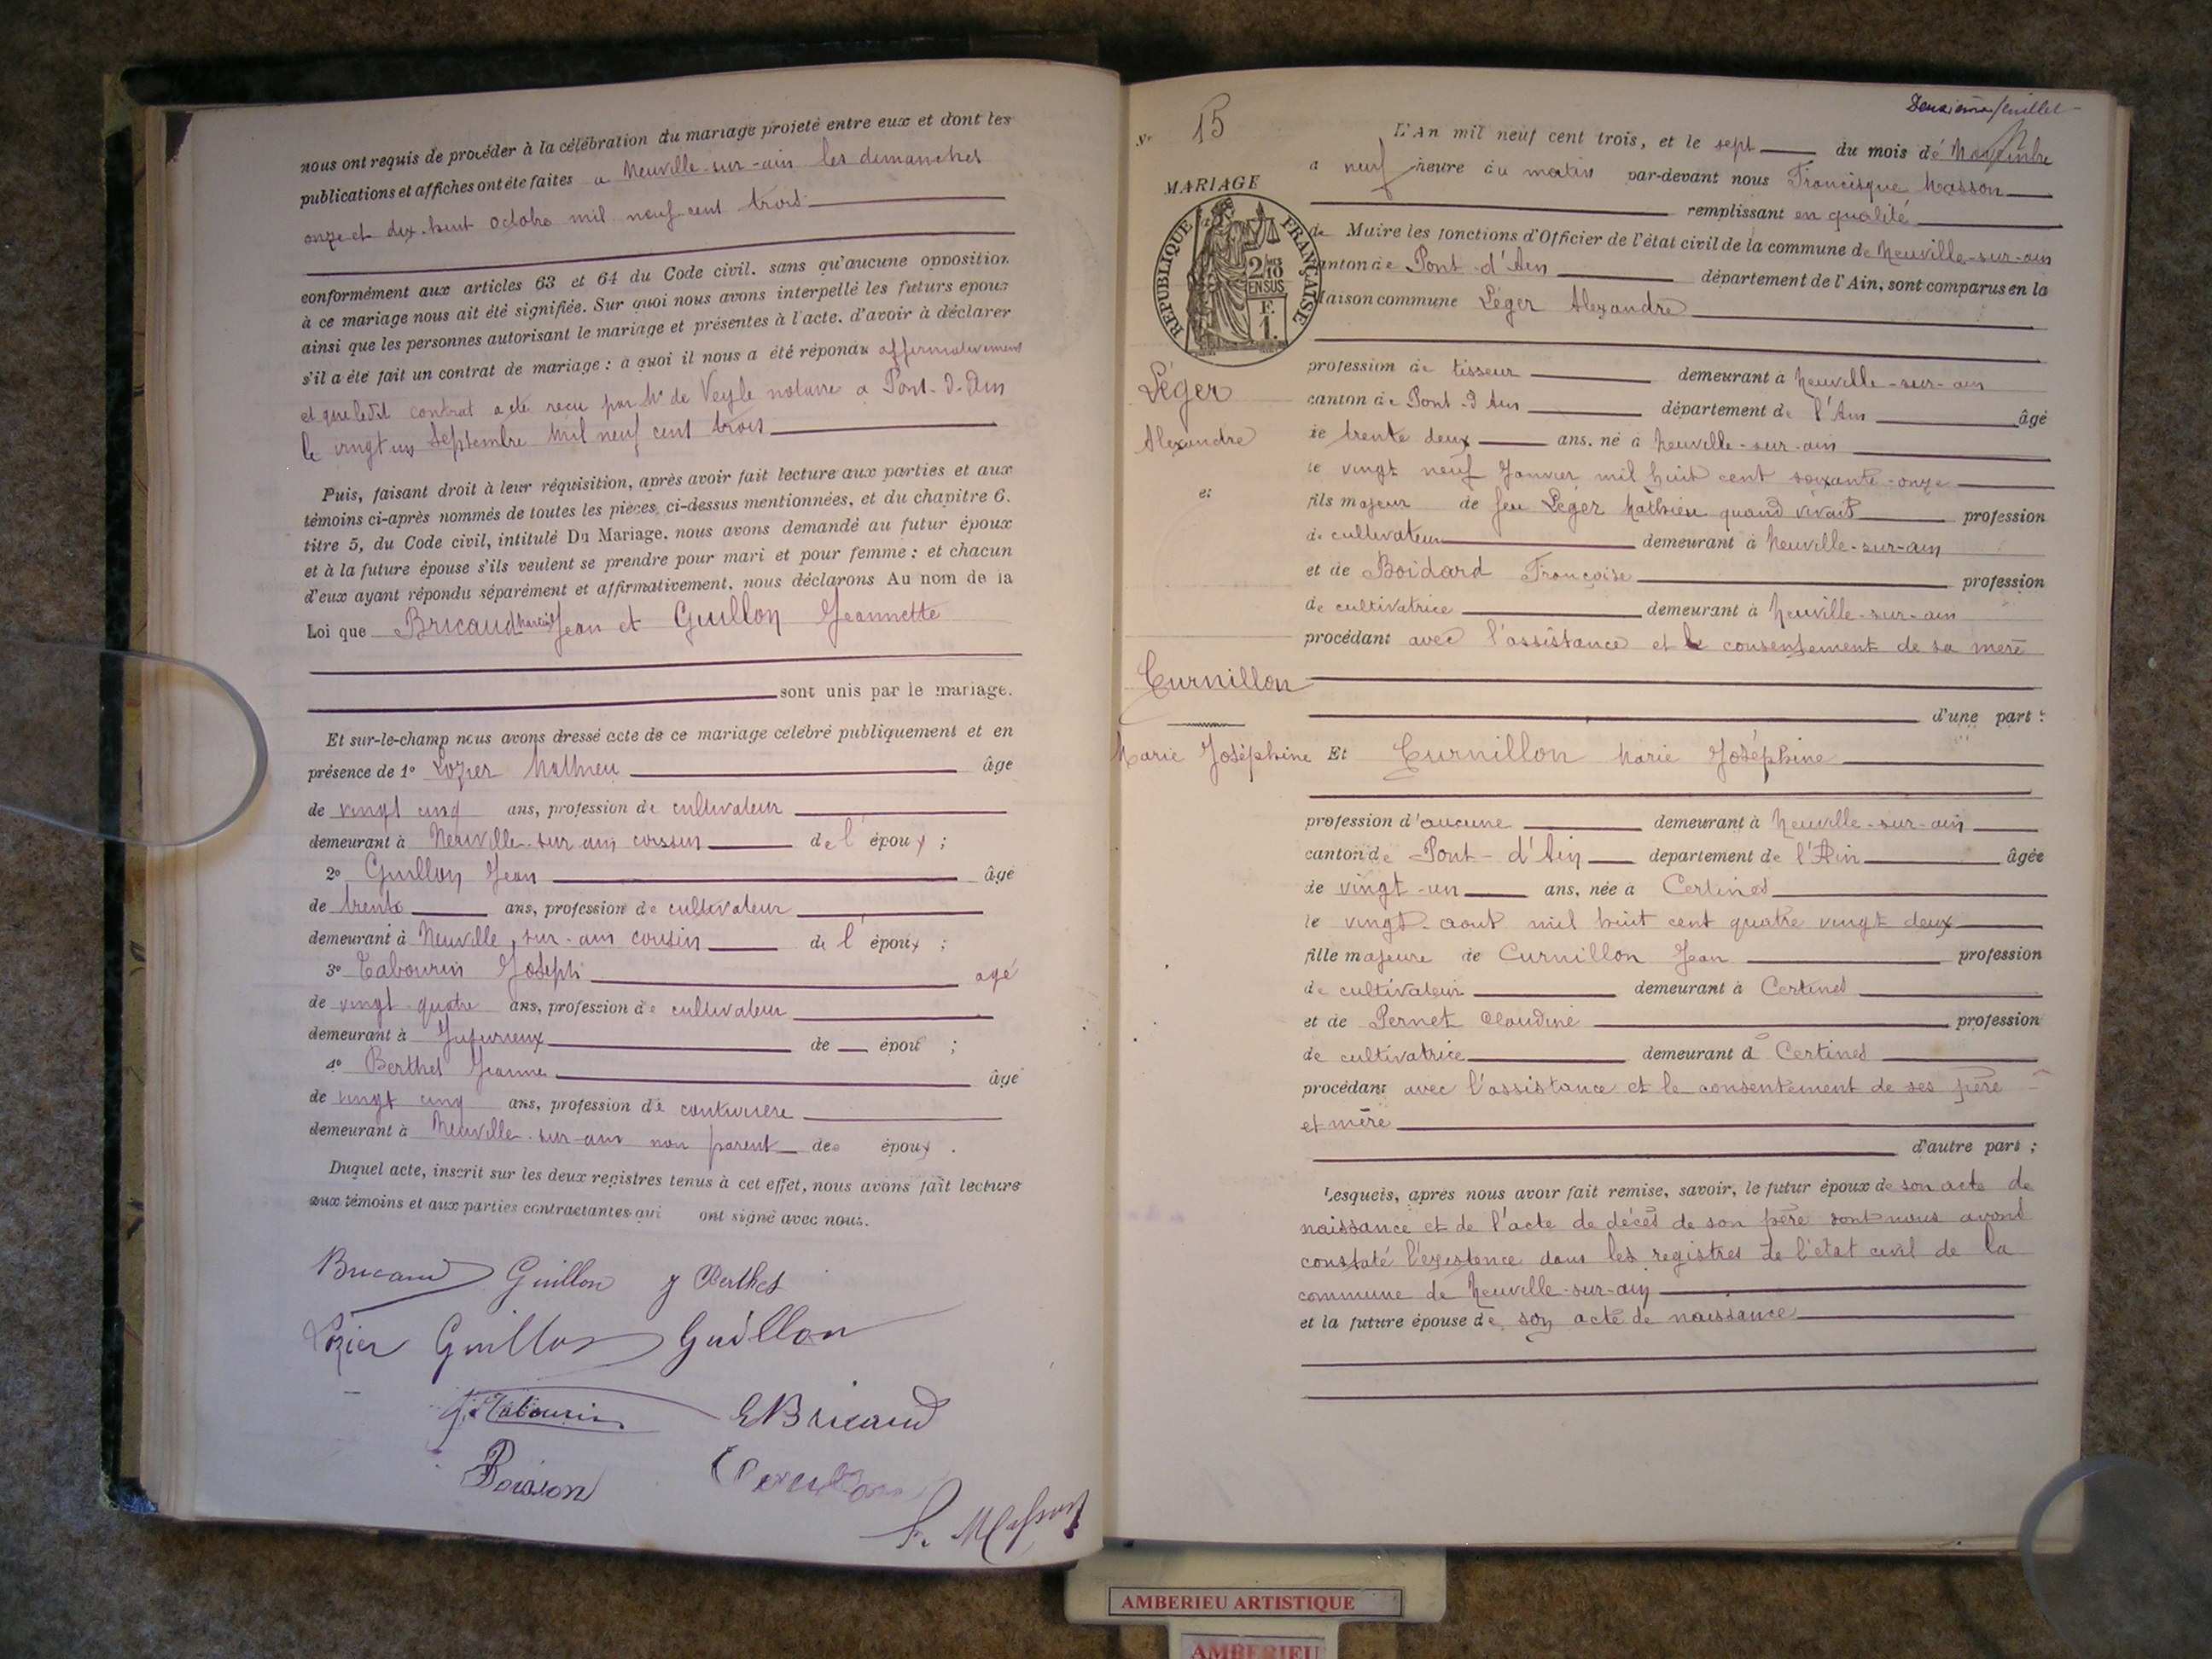 nous ont requis de procéder à la célébration du mariage projeté entre eux et dont les
publications et affiches ont été faites a Neuville-sur-ain les dimanches
onze et dix-huit octobre mil neuf-cent trois
conformément aux articles 63 et 64 du Code civil. sans qu'aucune opposition
à ce mariage nous ait été signifiée. Sur quoi nous avons interpellé les futurs epoux
ainsi que les personnes autorisant le mariage et présentes à l'acte. d'avoir à déclarer
s'il a été fait un contrat de mariage : a quoi il nous a été répondu affirmativement
et que ledit contrat a été recu par Me de Veyle notaire a Pont-d-Ain
le vingt un Septembre Mil neuf cent trois
Puis, faisant droit à leur réquisition, après avoir fait lecture aux parties et aux
témoins ci-après nommés de toutes les pièces, ci-dessus mentionnées, et du chapitre 6.
titre 5, du Code civil, intitulé Du Mariage, nous avons demandé au futur époux
et à la future épouse s'ils veulent se prendre pour mari et pour femme : et chacun
d'eux ayant répondu séparément et affirmativement, nous déclarons Au nom de la
Loi que Bricaud Jean et Guillon Jeannette
sont unis par le mariage.
Et sur-le-champ nous avons dressé acte de ce mariage celebré publiquement et en
présence de 1° Lozier Mathieu âge
de vingt cinq ans, profession de cultivateur
demeurant à Neuville-sur-ain cousin de l'époux ;
2° Guillon Jean âgé
de trente ans, profession de cultivateur
demeurant à Neuville-sur-ain cousin de l'époux ;
3° Tabourin Joseph agé
de vingt-quatre ans, profession de cultivateur
demeurant à Jujurieux de épou ;
4° Berthet Jeanne âgé
de vingt cinq ans, profession de couturiere
demeurant à Neuville-sur-ain non parent des époux .
Duquel acte, inscrit sur les deux registres tenus à cet effet, nous avons fait lecture
aux témoins et aux parties contractantes qui ont signé avec nous.
Bricaud Guillon J Berthet
Lozier Guillon Guillon
J. Tabourin E Bricaud
Poisson
F. Masson
Deuxième feuillet
No 15
L'An mil neuf cent trois, et le sept du mois de Novembre
a neuf heure du matin par-devant nous Francisque Masson
remplissant en qualité
de Maire les fonctions d'Officier de l'état civil de la commune de Neuville-sur-ain
canton de Pont-d'Ain département de l'Ain, sont comparus en la
Maison commune Léger Alexandre
MARIAGE
REPUBLIQUE FRANÇAISE
2/10
EN SUS
F.
1.
profession de tisseur demeurant à Neuville-sur-ain
Léger
canton de Pont-d'Ain département de l'Ain âgé
Alexandre
de trente deux ans. né à Neuville-sur-ain
le vingt neuf Janvier mil huit cent soixante-onze
et
fils majeur de feu Léger Mathieu quand vivait profession
de cultivateur demeurant à Neuville-sur-ain
et de Boidard Françoise profession
de cultivatrice demeurant à Neuville-sur-ain
procédant avec l'assistance et le consentement de sa mère
Curnillon
d'une part :
Marie Joséphine
Et Curnillon Marie Joséphine
profession d'aucune demeurant à Neuville-sur-ain
canton de Pont-d'Ain departement de l'Ain âgée
de vingt-un ans, née a Certines
le vingt-aout mil huit cent quatre vingt deux
fille majeure de Curnillon Jean profession
de cultivateur demeurant à Certines
et de Pernet Claudine profession
de cultivatrice demeurant à Certines
procédant avec l'assistance et le consentement de ses père
et mère
d'autre part ;
Lesquels, après nous avoir fait remise, savoir, le futur époux de son acte de
naissance et de l'acte de décès de son père dont nous avons
constaté l'existence dans les registres de l'état civil de la
commune de Neuville-sur-ain
et la future épouse de son acte de naissance
AMBERIEU ARTISTIQUE
AMBERIEU